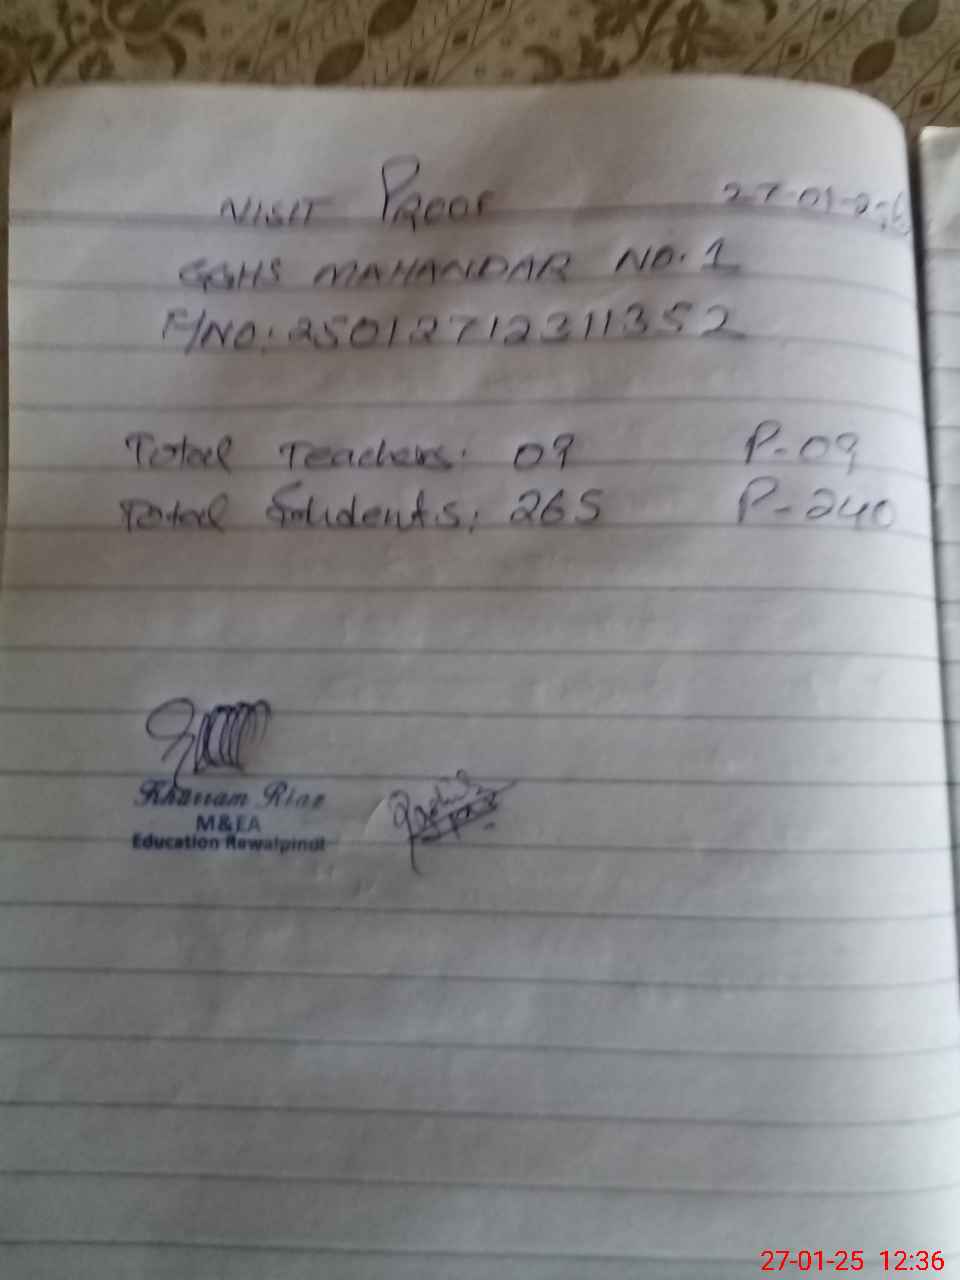 VISIT PROOF 27-01-25
GGHS MAHANDAR NO.1
F/NO: 25012712311352
Total Teachers: 09 P-09
Total Students: 265 P-240
Khurram Riaz
M&EA
Education Rawalpindi
27-01-25 12:36